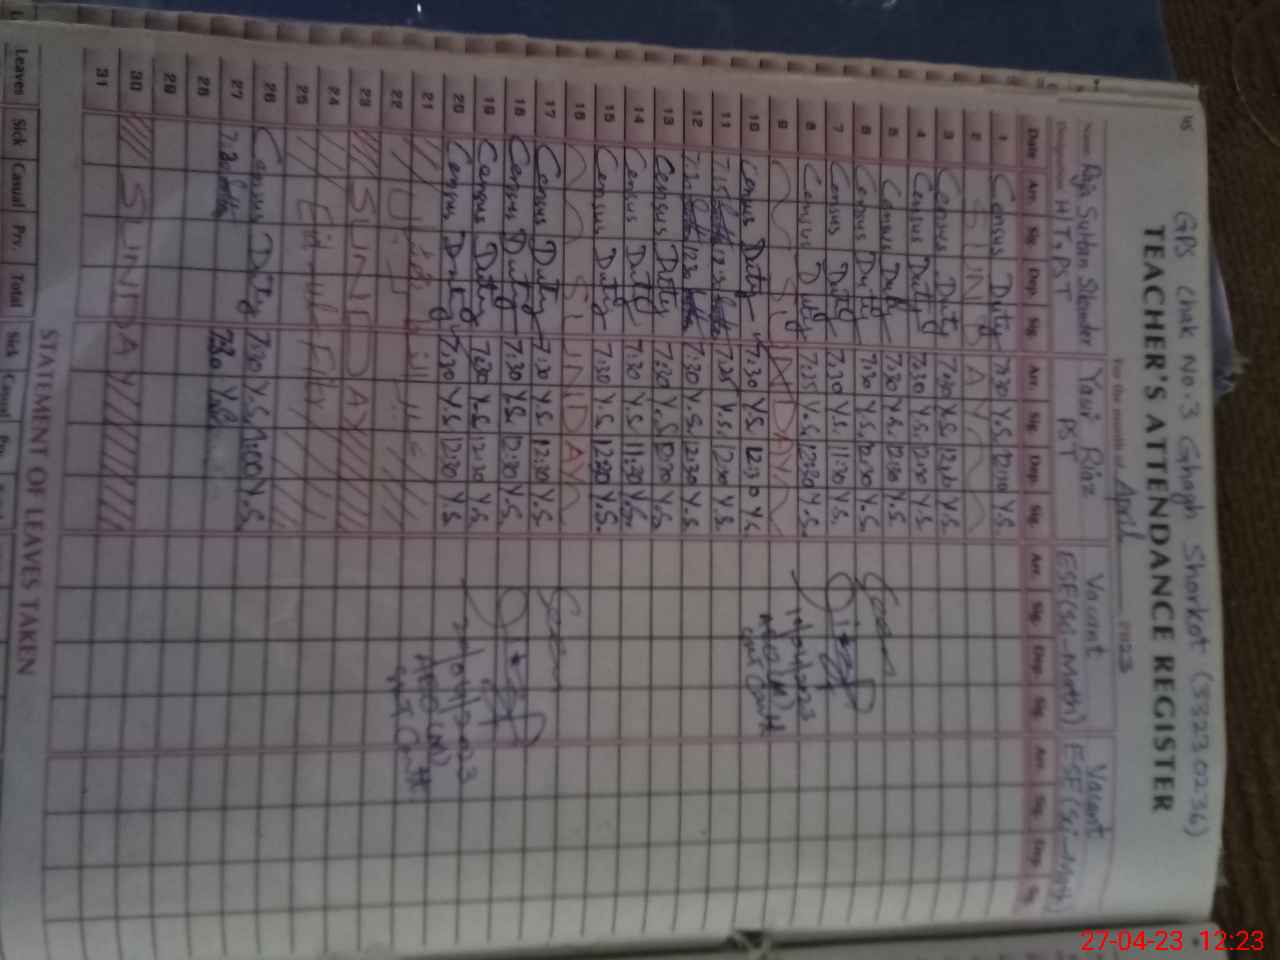 45
GPS Chak No. 3 Ghagh Shorkot (33230236)
TEACHER'S ATTENDANCE REGISTER
For the month of April 2023
Name Raja Sultan Skander Yasir Riaz Vacant Vacant
Designation HT, PST PST ESE(Sci-Math) ESE(Sci-Math)
Date Arr. Sig. Dep. Sig. Arr. Sig. Dep. Sig. Arr. Sig. Dep. Sig. Arr. Sig. Dep. Sig.
1 Census Duty 7:30 Y.S. 12:30 Y.S.
2 SUNDAY
3 Census Duty 7:30 Y.S. 12:30 Y.S.
4 Census Duty 7:30 Y.S. 12:30 Y.S.
5 Census Duty 7:30 Y.S. 12:30 Y.S.
6 Census Duty 7:30 Y.S. 12:30 Y.S.
7 Census Duty 7:30 Y.S. 11:30 Y.S.
8 Census Duty 7:25 Y.S. 12:30 Y.S.
9 SUNDAY
10 Census Duty 7:30 Y.S. 12:30 Y.S.
11 7:15 7:25 Y.S. Y.S.
12 7:30 12:30 7:30 Y.S. 12:30 Y.S.
13 Census Duty 7:30 Y.S. 12:30 Y.S.
14 Census Duty 7:30 Y.S. 11:30 Y.S.
15 Census Duty 7:30 Y.S. 12:30 Y.S.
16 SUNDAY
17 Census Duty 7:30 Y.S. 12:30 Y.S.
18 Census Duty 7:30 Y.S. 12:30 Y.S.
19 Census Duty 7:30 Y.S. 12:30 Y.S.
20 Census Duty 7:30 Y.S. 12:30 Y.S.
21
22
23 SUNDAY
24
25 Eid ul Fitr
26 Census Duty 7:30 Y.S. 1:00 Y.S.
27 7:30 7:30 Y.S.
28
29
30 SUNDAY
31
STATEMENT OF LEAVES TAKEN
Leaves Sick Casual Prv. Total Sick Casual Prv.
27-04-23 12:23